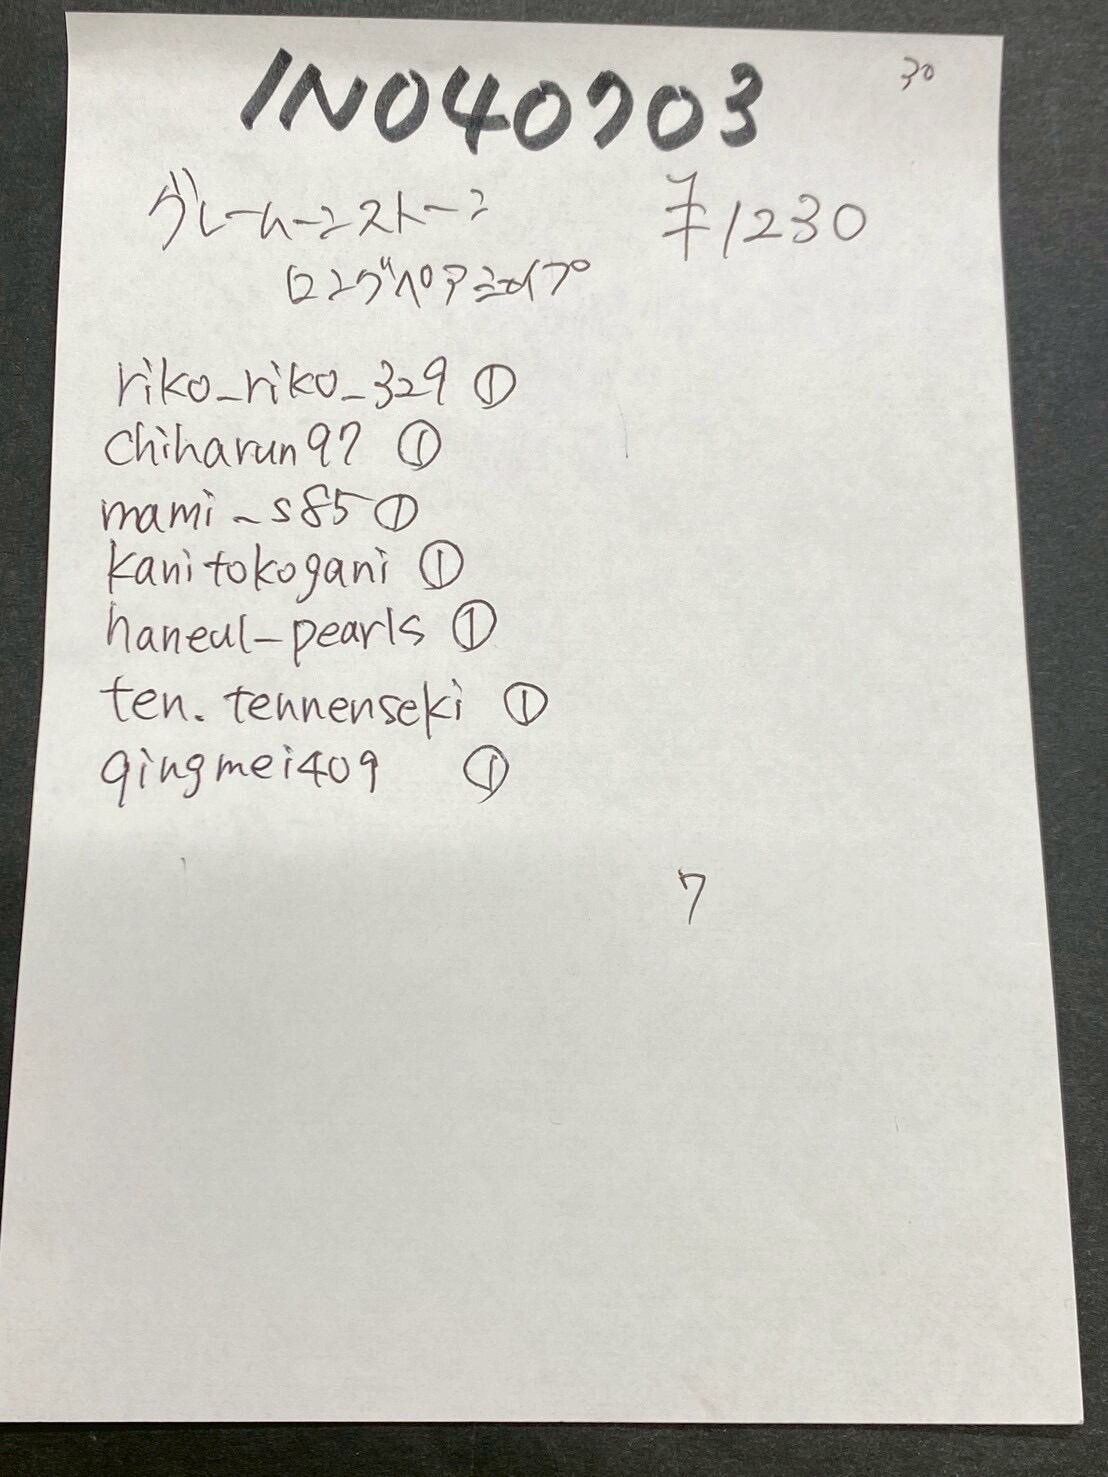 IN040703
30
グレームーンストーン
¥1230
ロングペアシェイプ
riko_riko_329 ①
chiharun97 ①
mami_s85 ①
kanitokogani ①
haneul_pearls ①
ten.tennenseki ①
qingmei409 ①
7